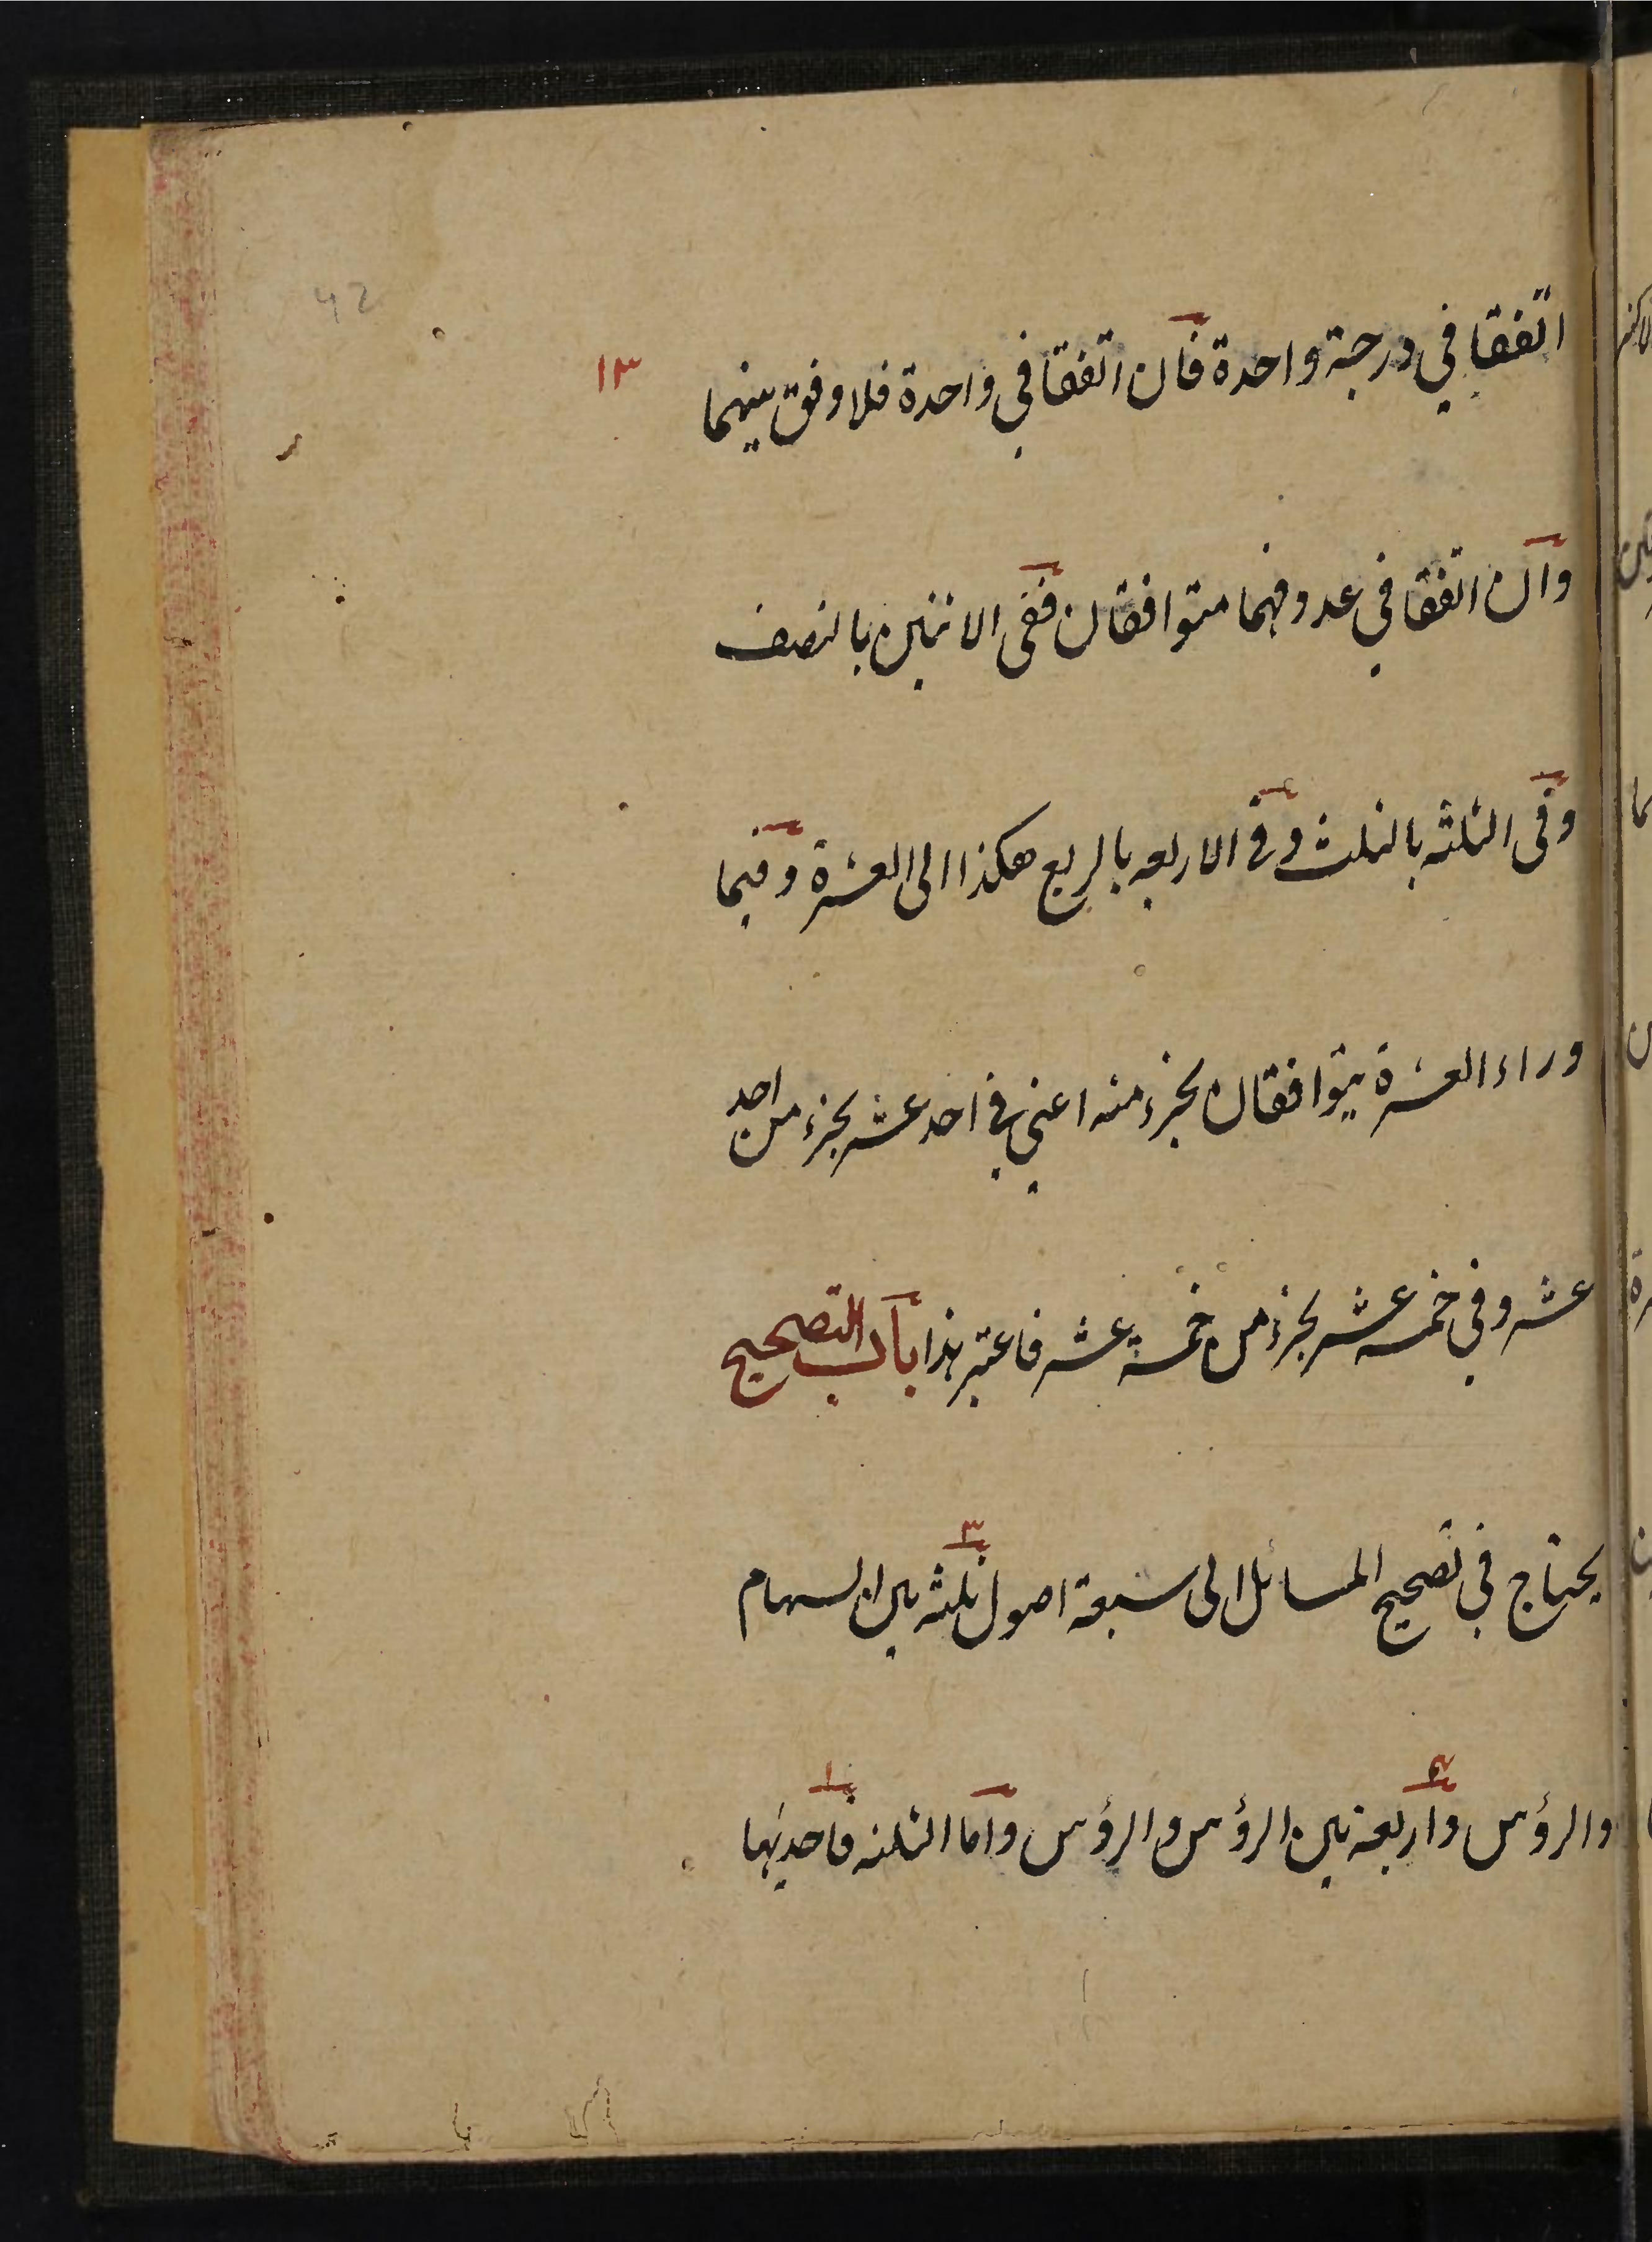 42
١٣
اتفقا في درجة واحدة فان اتفقا في واحدة فلا وفق بينهما
وان اتفقا في عدد فهما متوافقان ففى الاثنين بالنصف
وفى الثلثه بالثلث وفى الاربعه بالربع هكذا الى العشرة وفيما
وراء العشرة يتوافقان بجزء منه اعنى في احد عشر بجزء من احد
عشر وفي خمسه عشر بجزء من خمسة عشر فاعتبر هذا باب التصحيح
يحتاج في تصحيح المسائل الى سبعة اصول ثلثه بين السهام
٣
والرؤس واربعة بين الرؤس والرؤس واما الثلثه فاحديها
٤
١